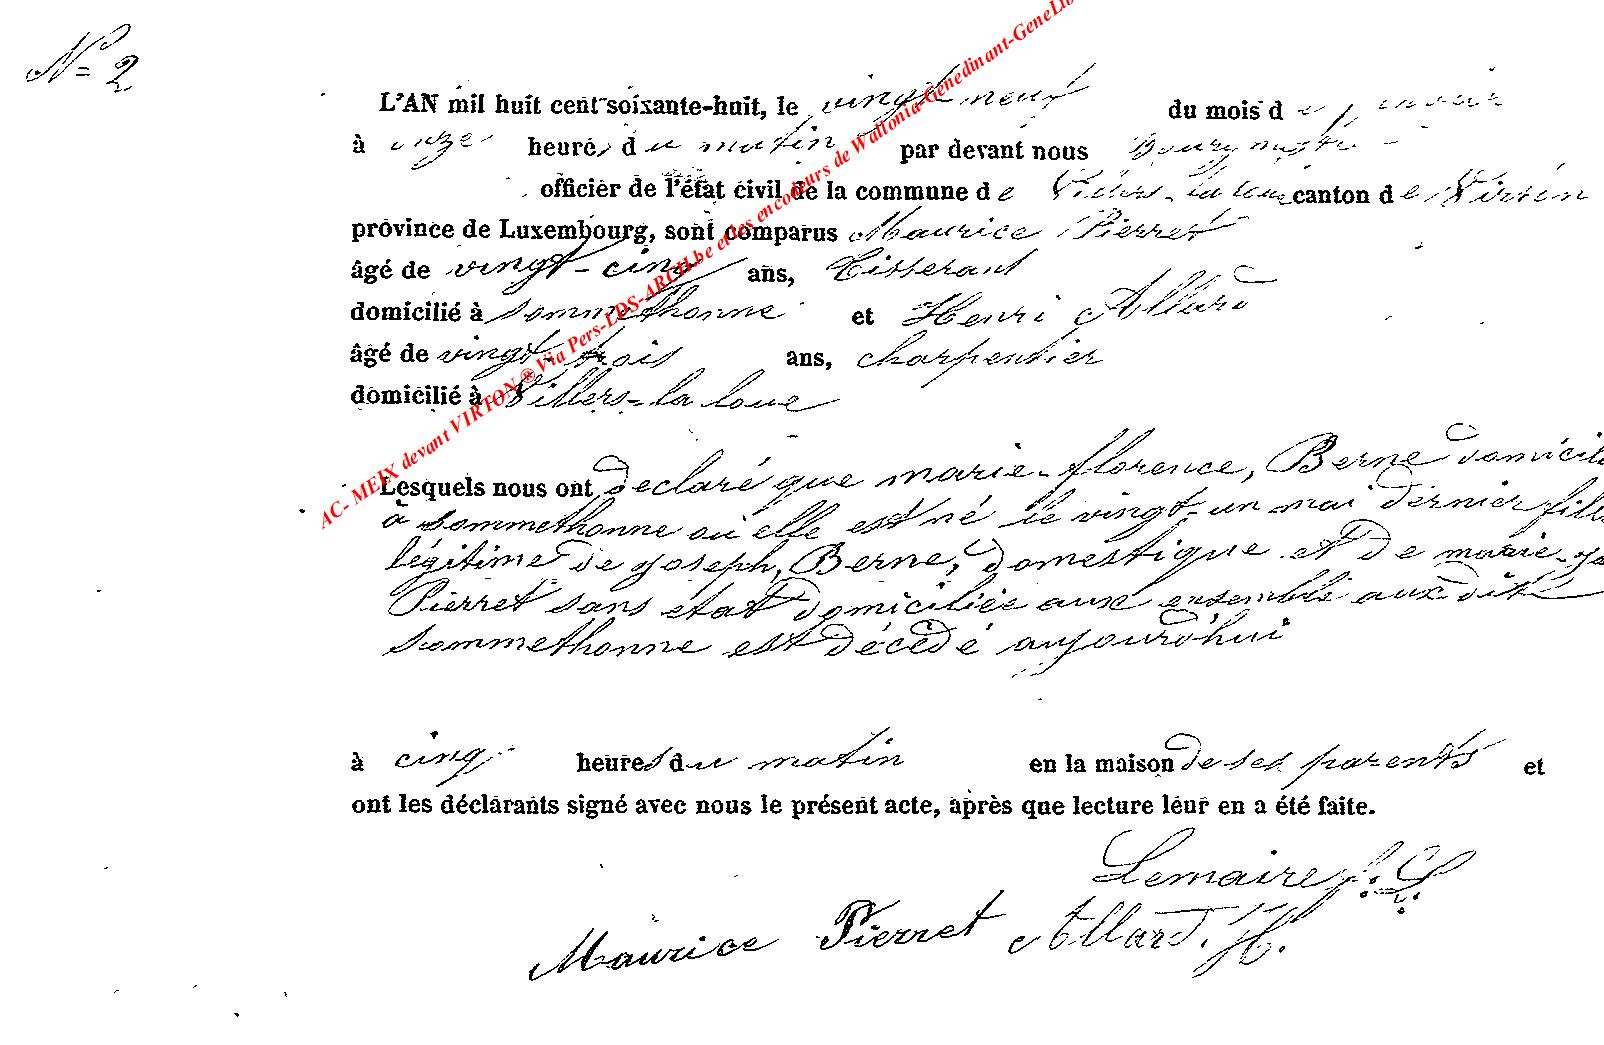 N= 2
L'AN mil huit cent soixante-huit, le vingt neuf du mois de janvier
à onze heures du matin par devant nous Bourgmestre
officier de l'état civil de la commune de Villers-la loue canton de Virton
province de Luxembourg, sont comparus Maurice Pierret
âgé de vingt-cinq ans, Tisserant
domicilié à Sommethonne et Henri Allard
âgé de vingt-trois ans, charpentier
domicilié à Villers-la loue
Lesquels nous ont declaré que marie-florence, Berne domicili
à Sommethonne où elle est né le vingt-un mai dernier fille
légitime de joseph, Berne, domestique et de marie-
Pierret sans état domiciliée aux ensemble aux dit
Sommethonne est décédé aujourd'hui
à cinq heures du matin en la maison de ses parents et
ont les déclarants signé avec nous le présent acte, après que lecture leur en a été faite.
Lemaire f. L.
Maurice Pierret Allard. H.
AC- MEIX devant VIRTON ® Via Pers-LDS-ARCH.be et les encodeurs de Wallonia-Genedinant-GeneLi